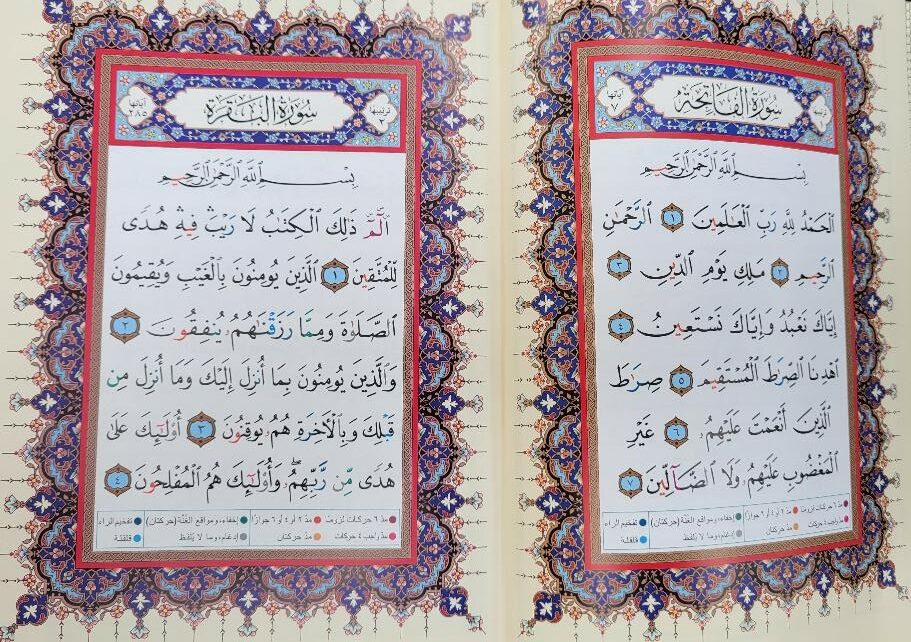 سُورَةُ الفَاتِحَةِ
ترتيبها
آياتها ٧
بِسْمِ اِ۬للَّهِ اِ۬لرَّحْمَٰنِ اِ۬لرَّحِيمِ
اَ۬لْحَمْدُ لِلهِ رَبِّ اِ۬لْعَٰلَمِينَ ١ اَ۬لرَّحْمَٰنِ
اِ۬لرَّحِيمِ ٢ مَلِكِ يَوْمِ اِ۬لدِّينِ ٣
إِيَّاكَ نَعْبُدُ وَإِيَّاكَ نَسْتَعِينُ ٤
اَ۪هْدِنَا اَ۬لصِّرَٰطَ اَ۬لْمُسْتَقِيمَ ٥ صِرَٰطَ
اَ۬لَّذِينَ أَنْعَمْتَ عَلَيْهِمُۥ ٦ غَيْرِ
اِ۬لْمَغْضُوبِ عَلَيْهِمُۥ وَلَا اَ۬لضَّآلِّينَ ٧
مدّ ٦ حركات لزوماً مدّ ٢ أو ٤ أو ٦ جوازاً إخفاء، ومواقع الغُنَّة (حركتان) تفخيم الراء
مدّ واجب ٤ حركات مدّ حركتان إدغام، وما لا يُلفَظ قلقلة
سُورَةُ البَقَرَةِ
ترتيبها
آياتها ٢٨٥
بِسْمِ اِ۬للَّهِ اِ۬لرَّحْمَٰنِ اِ۬لرَّحِيمِ
الٓمِّٓ ذَٰلِكَ اَ۬لْكِتَٰبُ لَا رَيْبَۛ فِيهِۛ هُدىٗ
لِّلْمُتَّقِينَ ١ اَ۬لَّذِينَ يُومِنُونَ بِالْغَيْبِ وَيُقِيمُونَ
اَ۬لصَّلَوٰةَ وَمِمَّا رَزَقْنَٰهُمُۥ يُنفِقُونَ ٢
وَالَّذِينَ يُومِنُونَ بِمَا أُنزِلَ إِلَيْكَ وَمَا أُنزِلَ مِن
قَبْلِكَ وَبِالْأَخِرَةِ هُمُۥ يُوقِنُونَ ٣ أُوْلَٰٓئِكَ عَلَىٰ
هُدىٗ مِّن رَّبِّهِمُۥۖ وَأُوْلَٰٓئِكَ هُمُ اُ۬لْمُفْلِحُونَ ٤
مدّ ٦ حركات لزوماً مدّ ٢ أو ٤ أو ٦ جوازاً إخفاء، ومواقع الغُنَّة (حركتان) تفخيم الراء
مدّ واجب ٤ حركات مدّ حركتان إدغام، وما لا يُلفَظ قلقلة